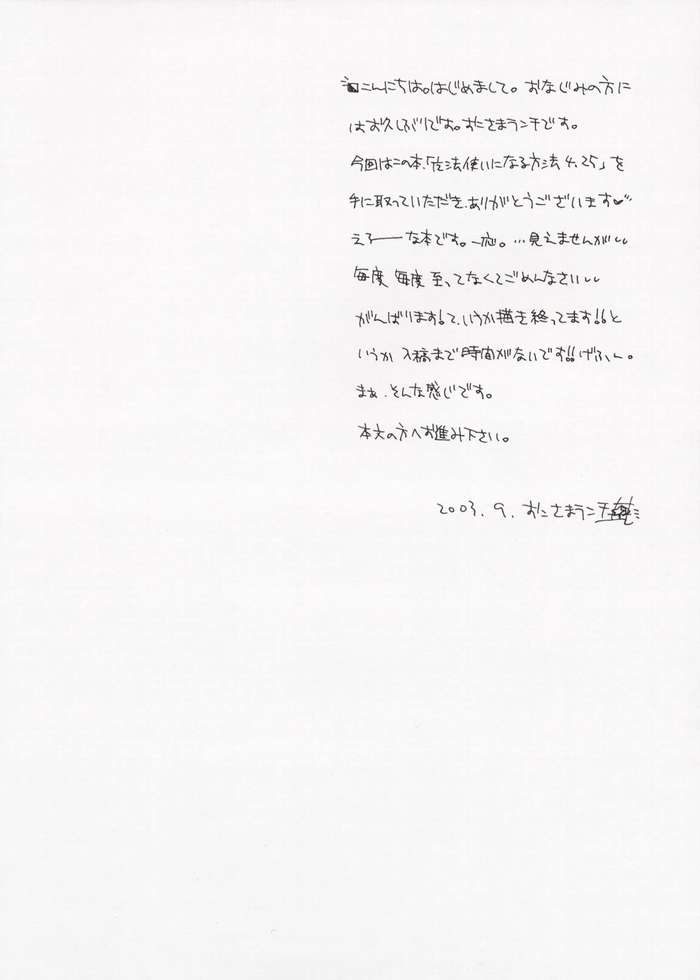 こんにちは。はじめまして。おなじみの方に
はお久しぶりです。おにさまランチです。
今回はこの本、「魔法使いになる方法4.25」を
手に取っていただき、ありがとうございます♥
えろーーな本です。一応。…見えませんが
毎度 毎度 至ってなくてごめんなさい
がんばります!て、いうか描き終ってます!!と
いうか 入稿まで時間がないです!!げふぅ。
まぁ、そんな感じです。
本文の方へお進み下さい。
2003.9. おにさまランチ